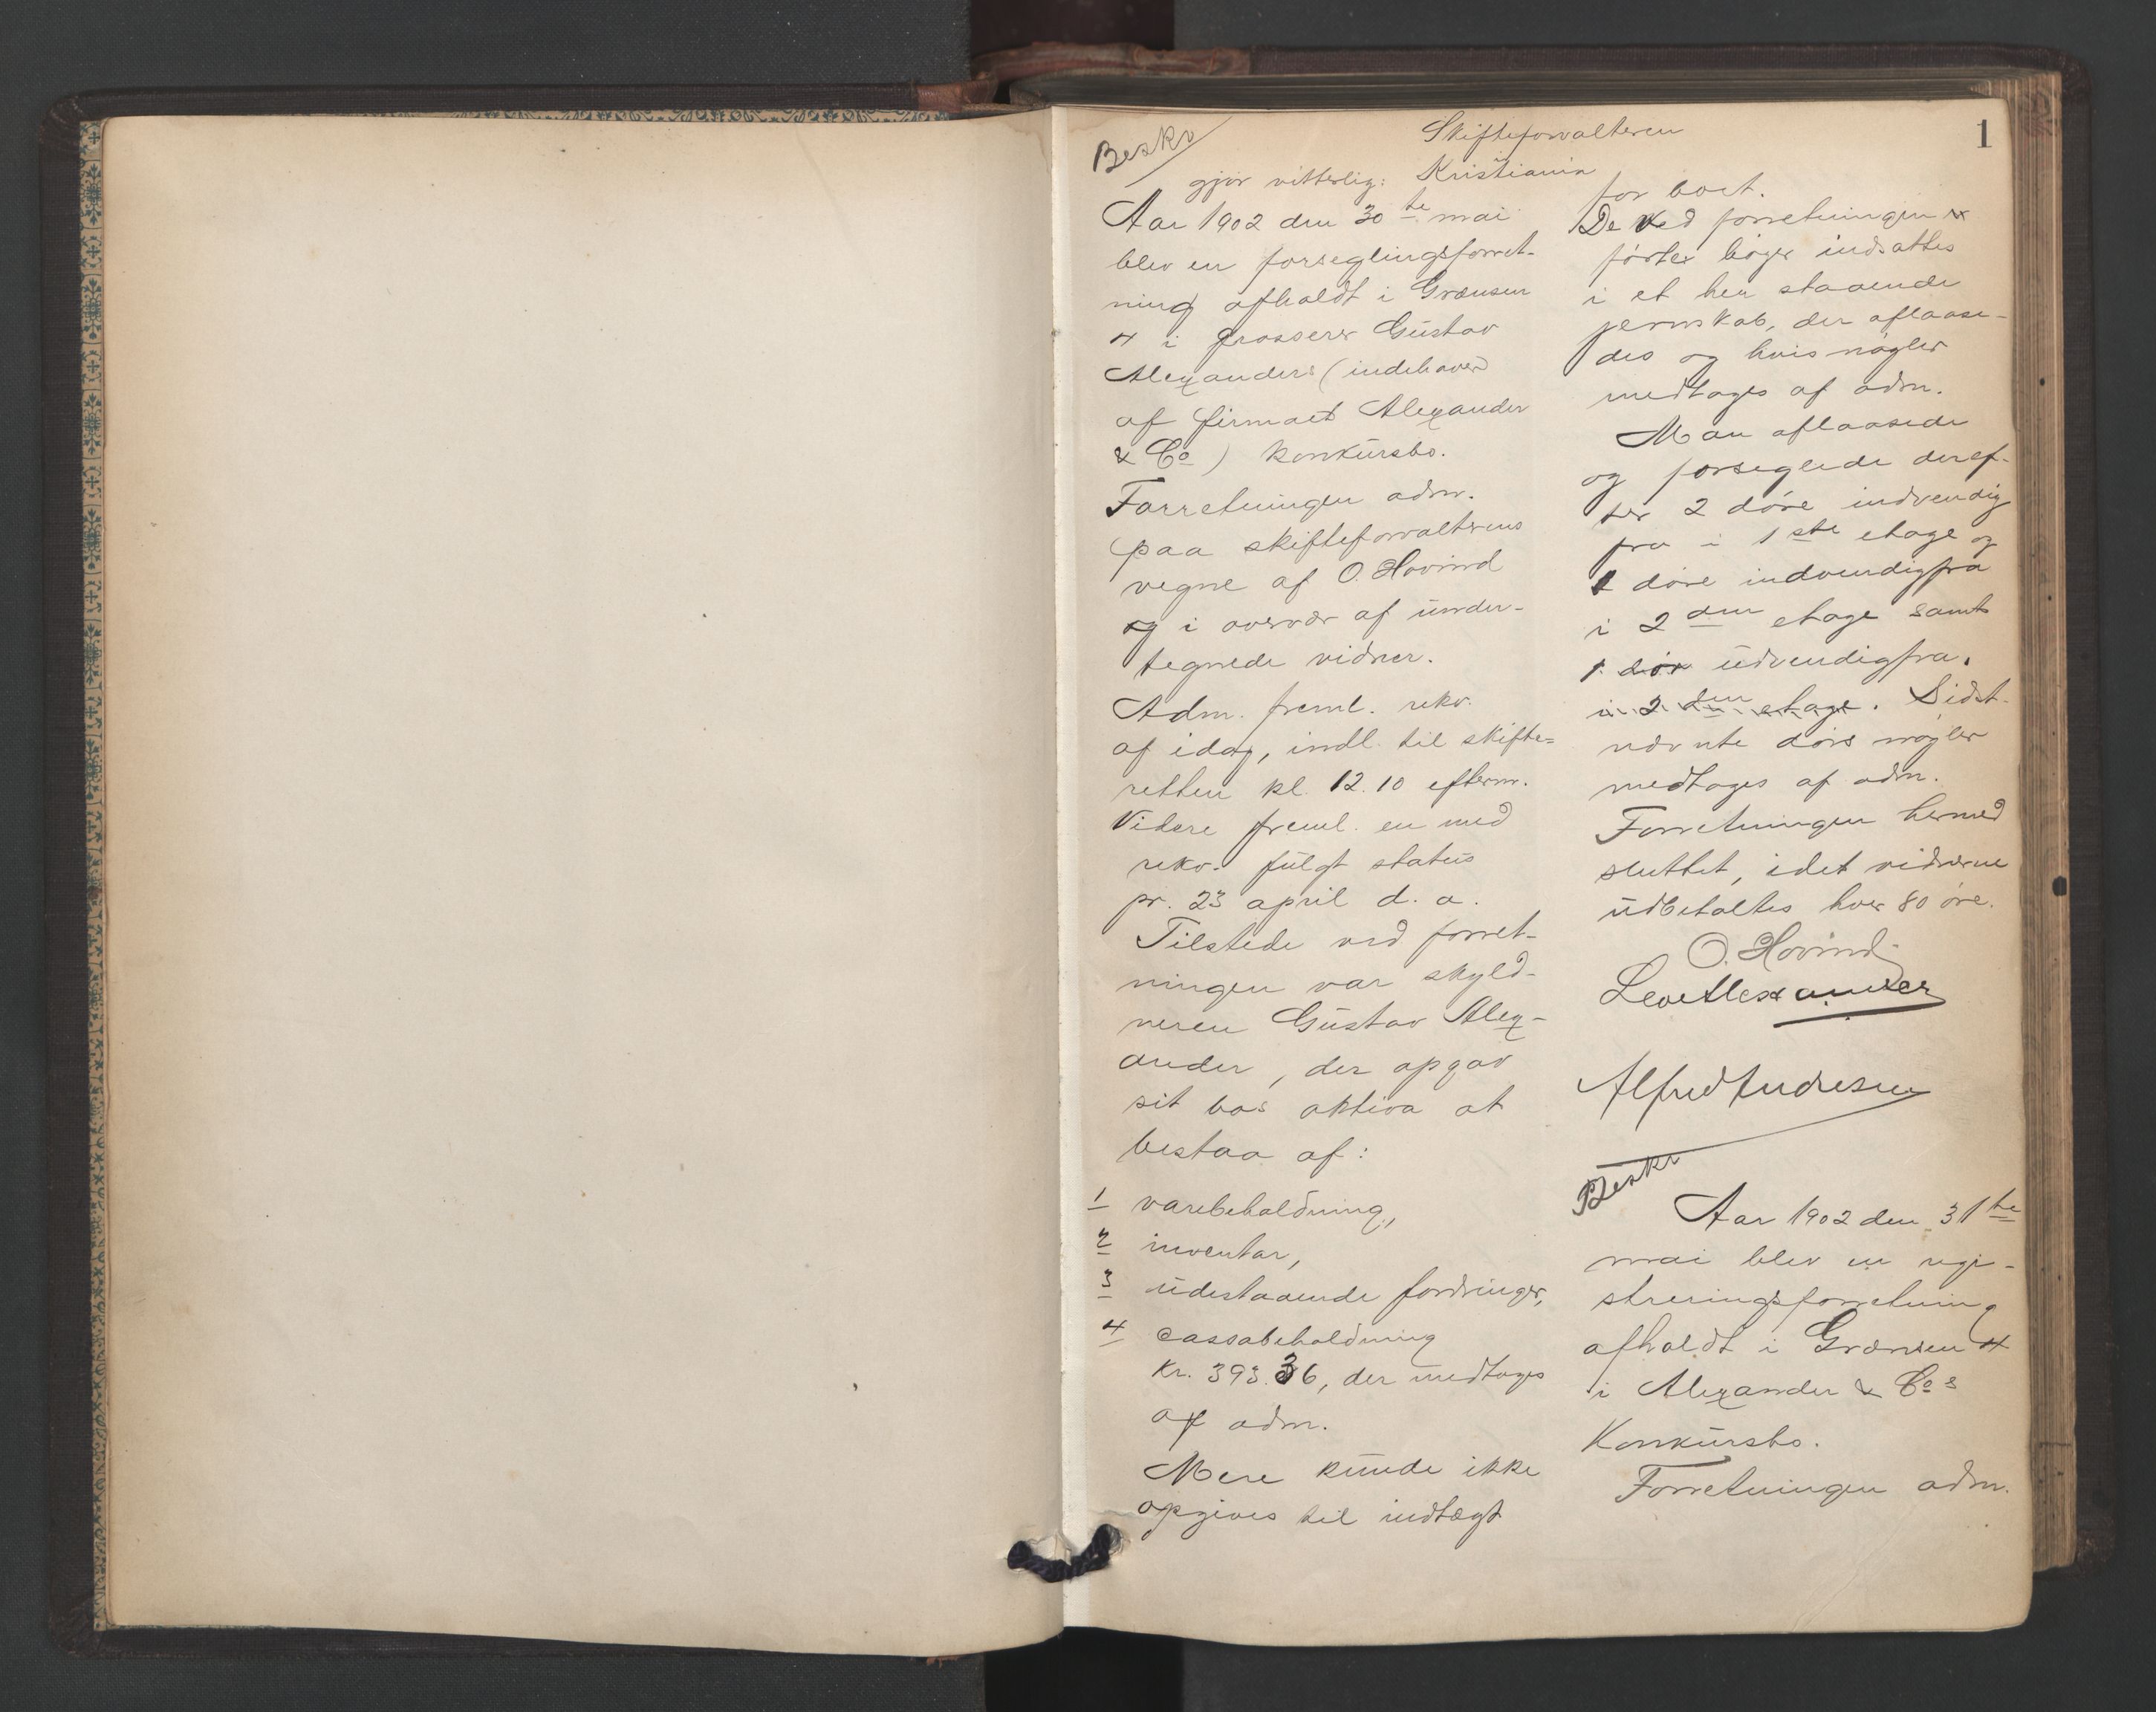 1
Beskr
Skifteforvalteren
i
gjør vitterlig: Kristiania
Aar 1902 den 30te mai
blev en forseglingsforret-
ning afholdt i Grænsen
4 i grosserer Gustav
Alexanders (indehaver
af firmaet Alexander
& Co) konkursbo.
Forretningen adm.
paa skifteforvalterens
vegne af O. Hovind
og i overvær af under-
tegnede vidner.
Adm. freml. rekv.
af idag, indl. til skifte-
retten kl. 12.10 efterm.
Videre freml. en med
rekv. fulgt status
pr. 23 april d. a.
Tilstede ved forret-
ningen var skyld-
neren Gustav Alex-
ander, der opgav
sit bos aktiva at
bestaa af:
1 varebeholdning,
2 inventar,
3 udestaaende fordringer,
4 cassabeholdning
kr. 393.36, der medtages
af adm.
Mere kunde ikke
opgives til indtægt
for boet.
De ved forretningen
førte bøger indsattes
i et her staaende
jernskab, der aflaase-
des og hvis nøgler
medtages af adm.
Man aflaasede
og forseglede deref-
ter 2 døre indvendig
fra i 1ste etage og
1 døre indvendigfra
i 2den etage samt
1 dør udvendigfra.
i 2den etage. Sidst-
nævnte dørs nøgler
medtages af adm.
Forretningen hermed
sluttet, idet vidnerne
udbetaltes hver 80 øre.
O. Hovind
Leo Alexander
Alfred Andresen
Beskr
Aar 1902 den 31te
mai blev en regi-
streringsforretning
afholdt i Grænsen 4
i Alexander & Cos
Konkursbo.
Forretningen adm.